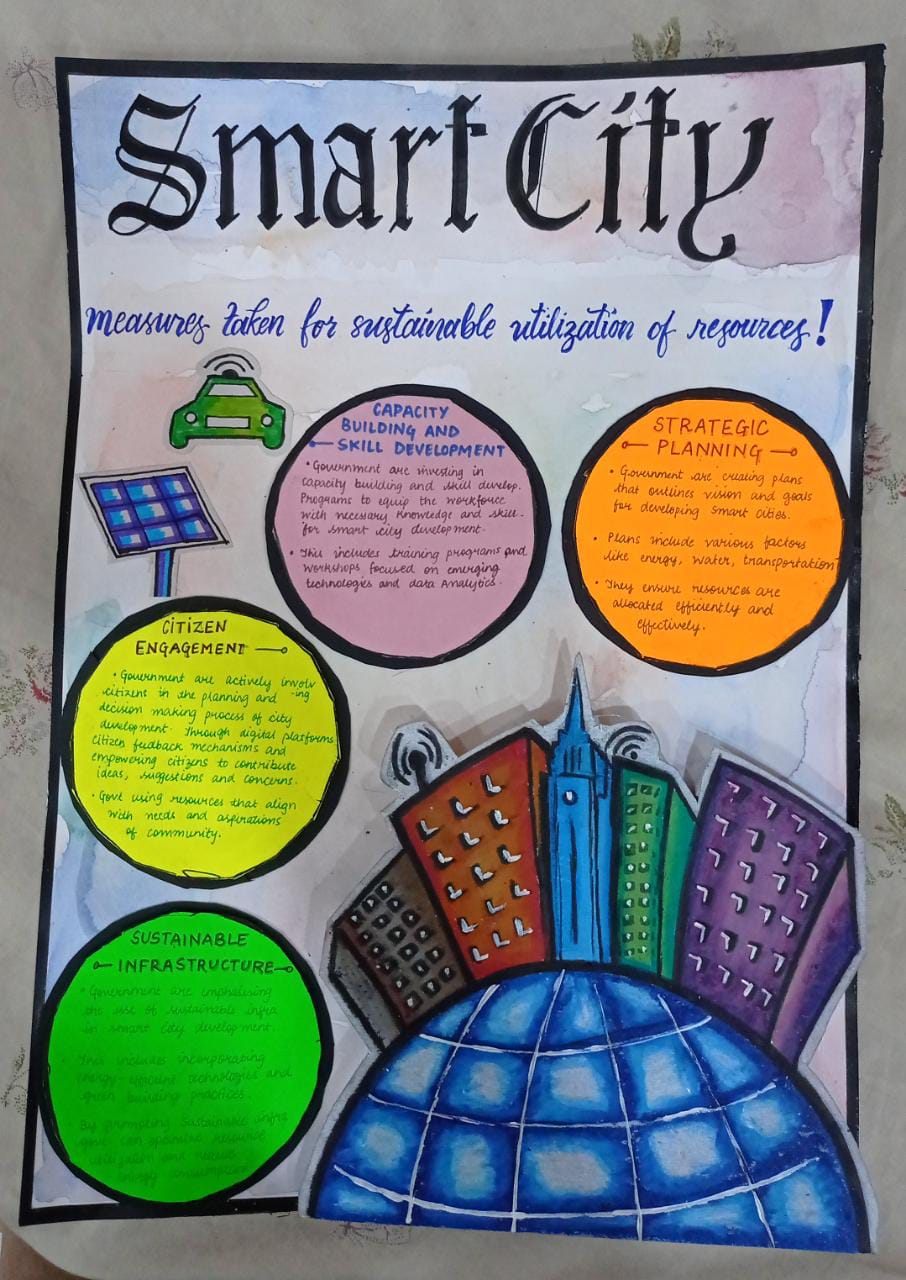 Smart City
measures taken for sustainable utilization of resources!
CAPACITY
BUILDING AND
SKILL DEVELOPMENT
• Government are investing in
capacity building and skill develop.
Programs to equip the workforce
with necesary knowledge and skill.
for smart city development.
• This includes training programs and
workshops focused on emerging
technologies and data Analytics.
STRATEGIC
PLANNING
• Government are creating plans
that outlines vision and goals
for developing smart cities.
• Plans include various factors
like energy, water, transportation
• They ensure resources are
allocated efficiently and
effectively.
CITIZEN
ENGAGEMENT
• Government are actively involv
citizens in the planning and -ing
decision making process of city
development. Through digital platforms
citizen feedback mechanisms and
empowering citizens to contribute
ideas, suggestions and concerns.
• Govt using resources that align
with needs and aspirations
of community.
SUSTAINABLE
INFRASTRUCTURE
• Government are emphasising
the use of sustainable infra
in smart city development.
• This includes incorporating
energy-efficient technologies and
green building practices.
• By promoting sustainable infra
govt can optimize resource
utilization and reduce
energy consumption